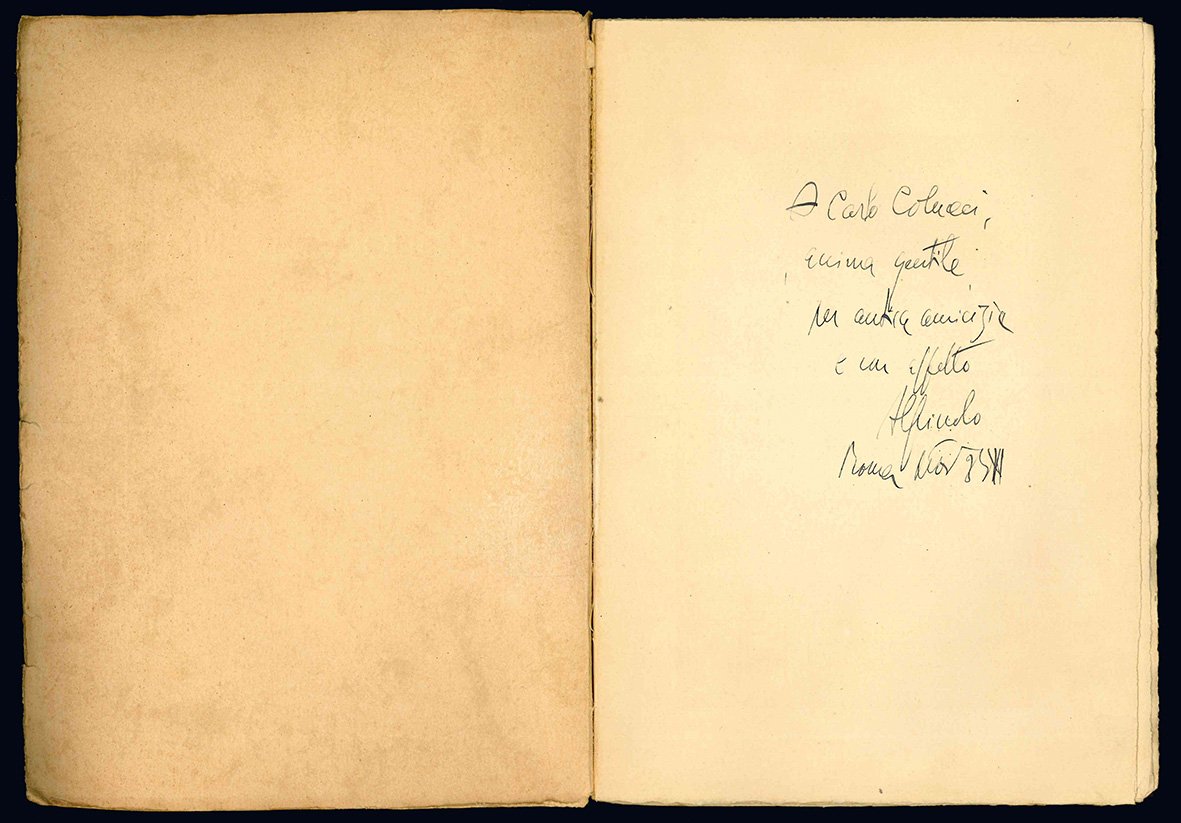 A Carlo Colucci,
anima gentile
per antica amicizia
e con affetto
Roma Nov